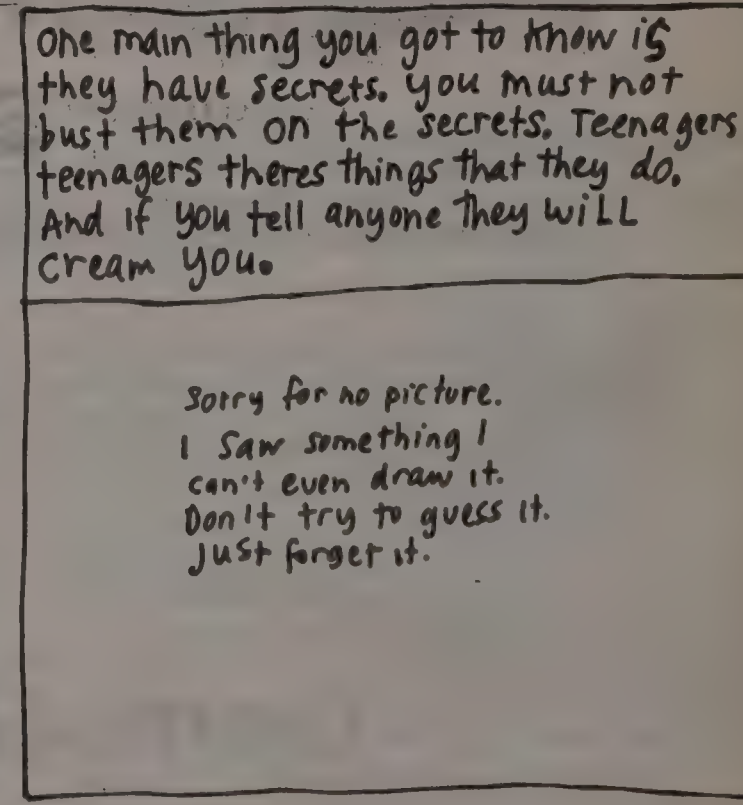 One main thing you got to know is
they have secrets. you must not
bust them on the secrets. Teenagers
teenagers theres things that they do.
And if you tell anyone they will
cream you.
Sorry for no picture.
I saw something I
can't even draw it.
Don't try to guess it.
Just forget it.